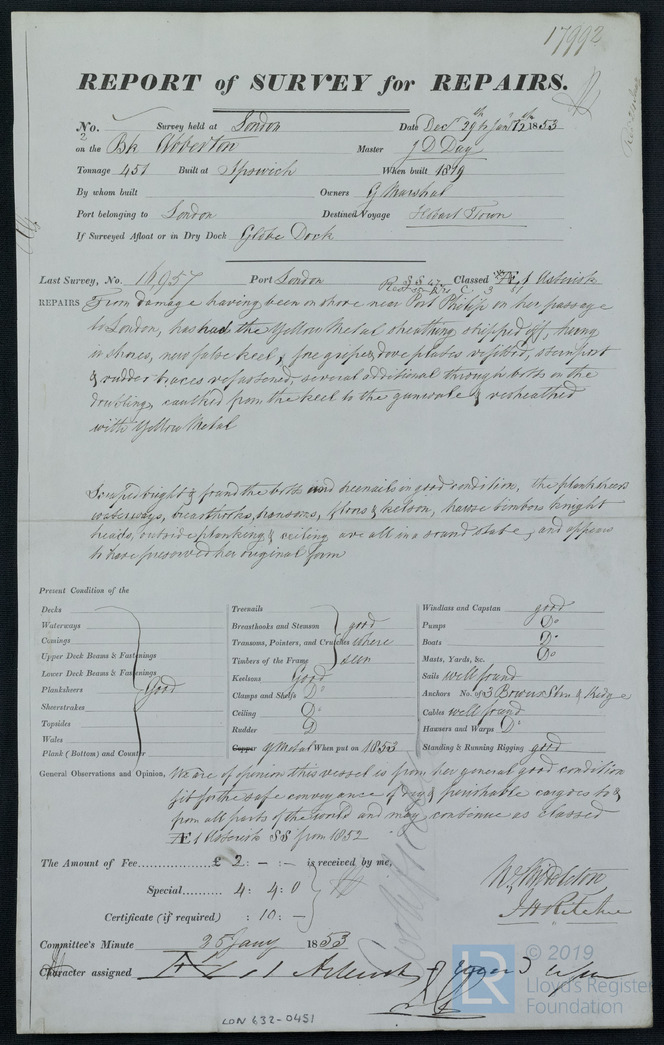 17992
REPORT of SURVEY for REPAIRS.
No. 2 Survey held at London Date Decr 29th to Jany 12th 1853
on the Bk Abberton Master J D Day
Tonnage 451 Built at Ipswich When built 1819
By whom built Owners G Marshal
Port belonging to London Destined Voyage Hobart Town
If Surveyed Afloat or in Dry Dock Globe Dock
Last Survey, No. 16957 Port London Classed Æ 1 Asterisk
SS 47
REPAIRS From damage having been on shore near Port Philip on her passage
to London, has had the Yellow Metal sheathing stripped off, hung
in shores, new false keel, fore gripe, dove plates refitted, sternpost
& rudder braces refastened, several additional through bolts in the
doubling, caulked from the keel to the gunwale & resheathed
with Yellow Metal
Scraped bright & found the bolts and treenails in good condition, the planksheers
waterways, breasthooks, transoms, floors & kelson, hawse timbers knight
heads, outside planking & ceiling are all in a sound state, and appears
to have preserved her original form
Present Condition of the
Decks
Waterways
Comings
Upper Deck Beams & Fastenings
Lower Deck Beams & Fastenings
Planksheers Good
Sheerstrakes
Topsides
Wales
Plank (Bottom) and Counter
Treenails
Breasthooks and Stemson good
Transoms, Pointers, and Crutches where
Timbers of the Frame seen
Keelsons Good
Clamps and Shelfs Do
Ceiling Do
Rudder D
Copper Y Metal When put on 1853
Windlass and Capstan good
Pumps Do
Boats Do
Masts, Yards, &c. Do
Sails well found
Anchors No. of 3 Bowers Strm & Kedge
Cables well found
Hawsers and Warps Do
Standing & Running Rigging good
General Observations and Opinion, We are of opinion this vessel is from her general good condition
fit for the safe conveyance of dry & perishable cargoes to &
from all parts of the world and may continue as classed
Æ 1 Asterisk SS from 1852
The Amount of Fee £ 2 : – : – is received by me,
Special 4 : 4 : 0
Certificate (if required) : 10 : –
W. Middleton
J H Ritchie
Committee's Minute 25 Jany 1853
Character assigned Æ 1 Asterisk
© 2019
LR Lloyd's Register
Foundation
LON 632-0451